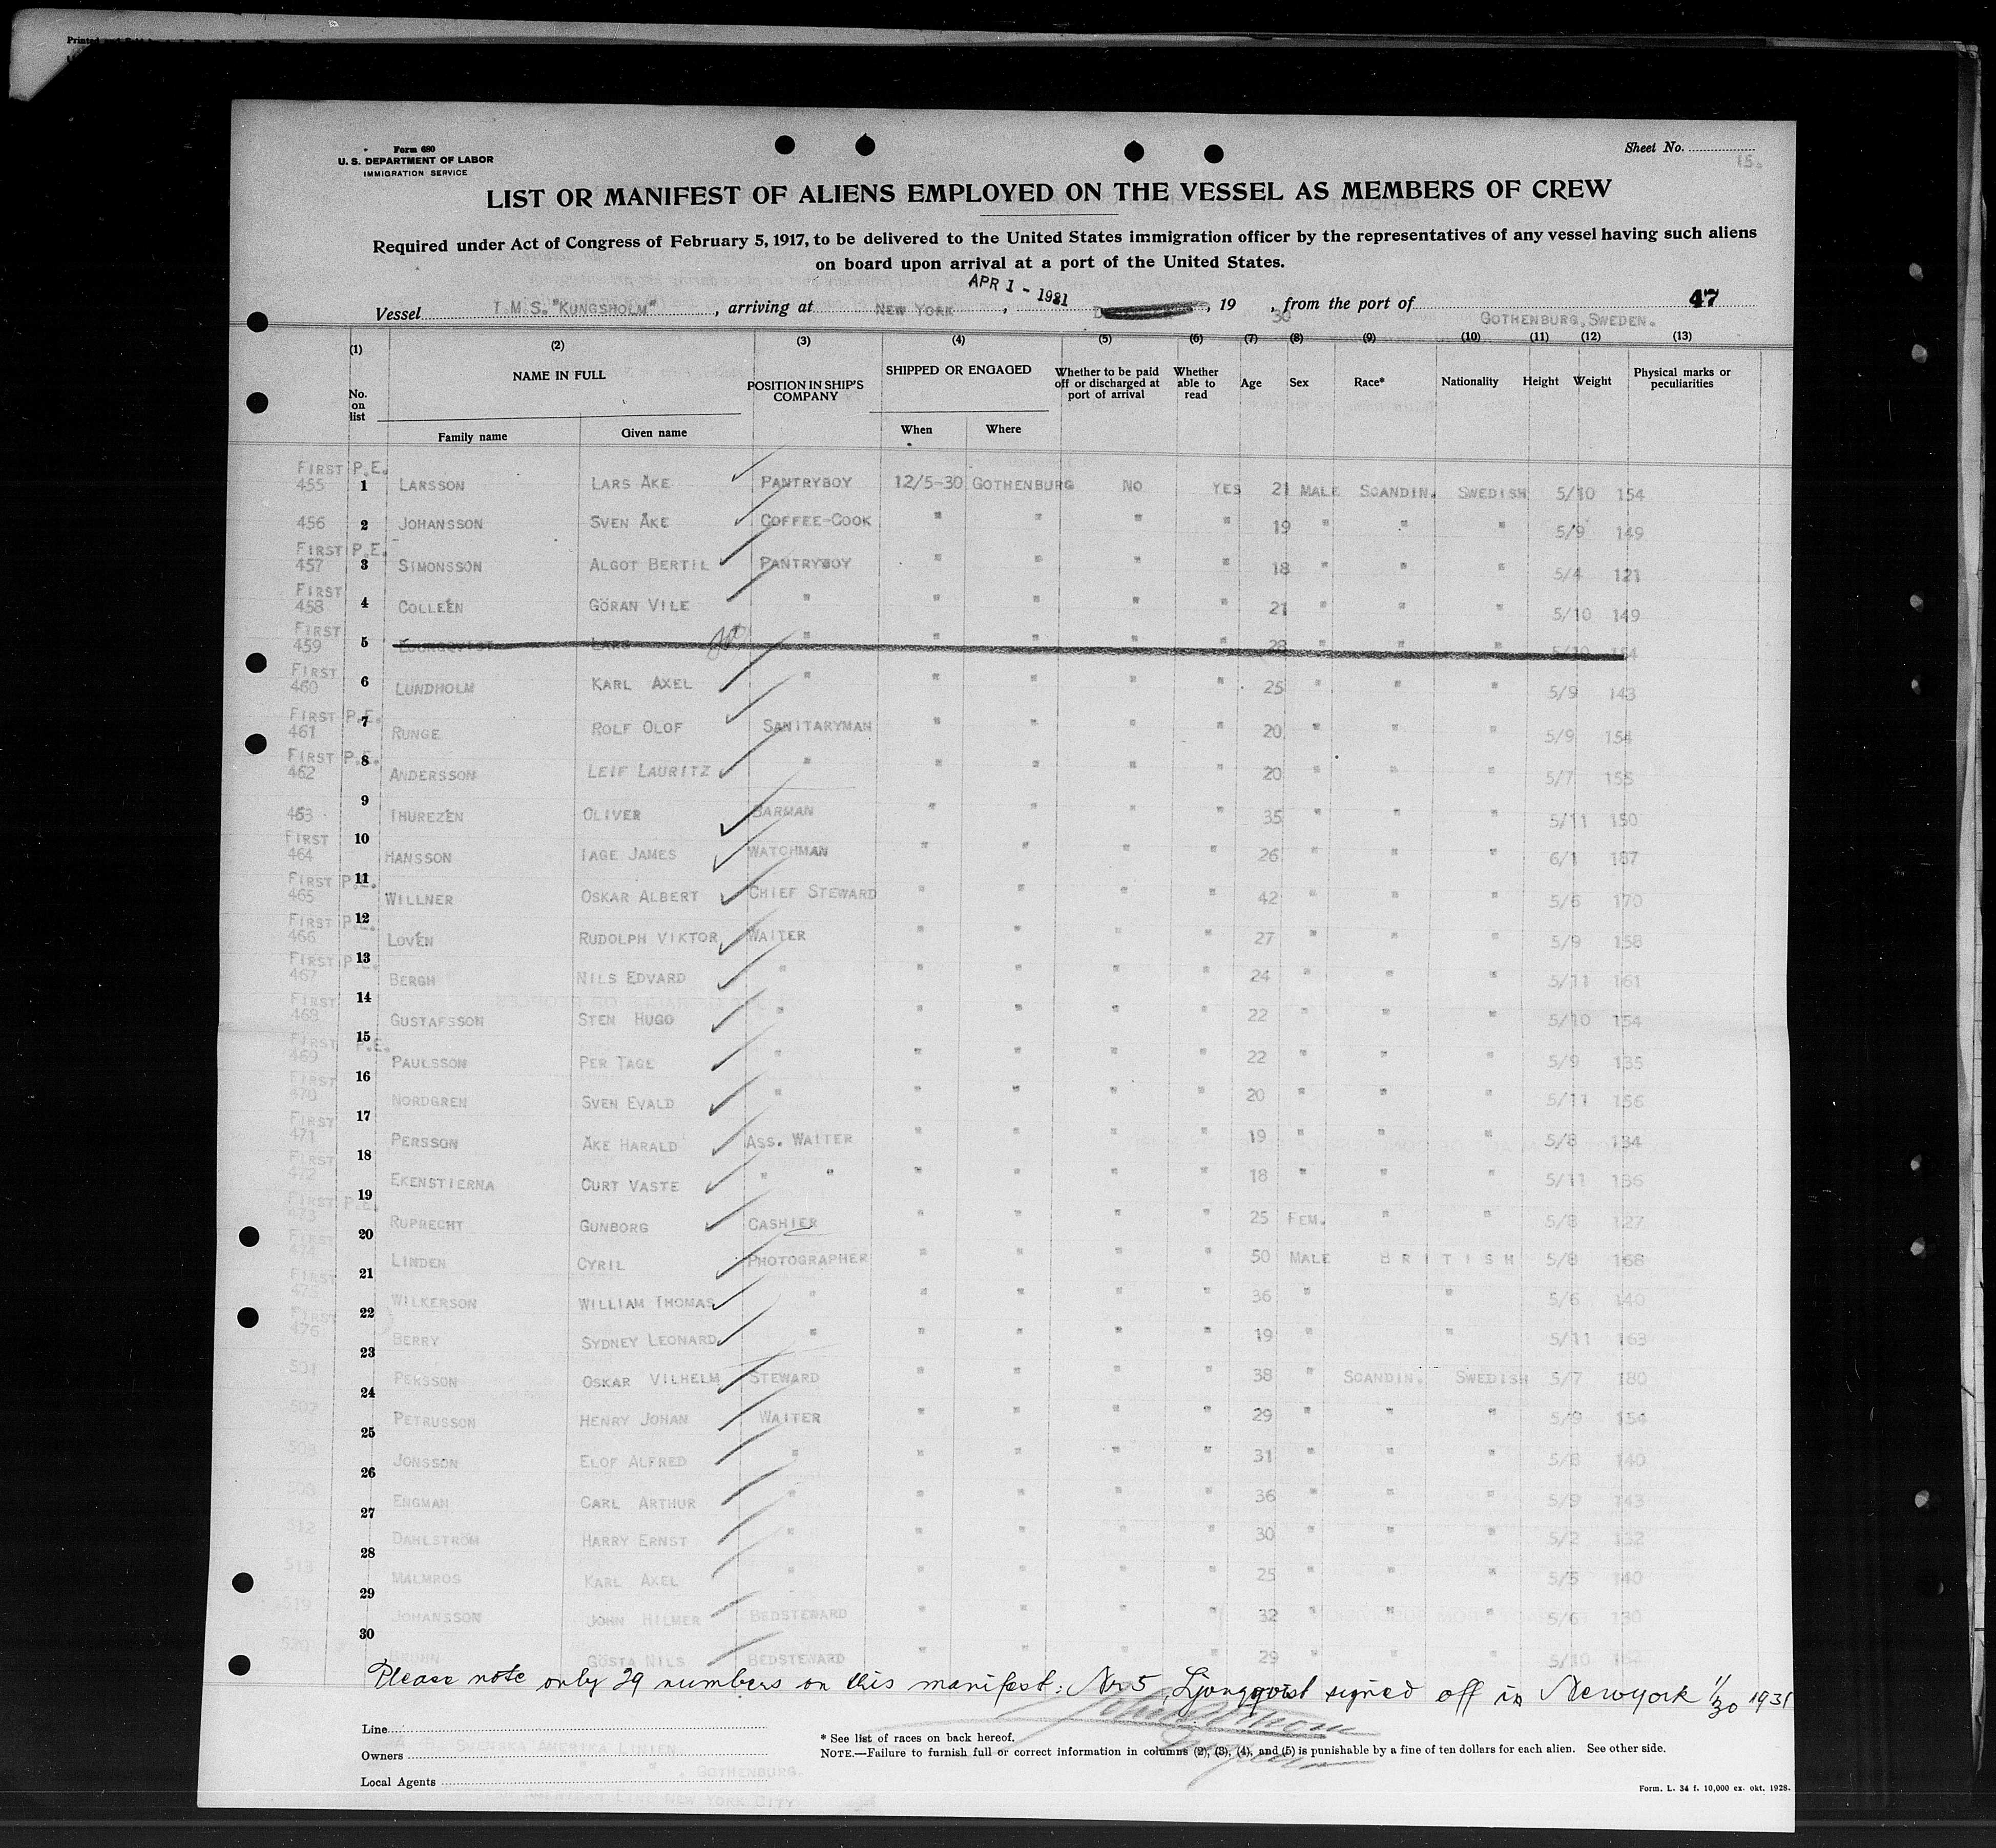 Form 680
U. S. DEPARTMENT OF LABOR
IMMIGRATION SERVICE
Sheet No. 15.
LIST OR MANIFEST OF ALIENS EMPLOYED ON THE VESSEL AS MEMBERS OF CREW
Required under Act of Congress of February 5, 1917, to be delivered to the United States immigration officer by the representatives of any vessel having such aliens
on board upon arrival at a port of the United States.
APR 1 - 1931
47
Vessel T.M.S."KUNGSHOLM", arriving at NEW YORK, , 19 30, from the port of GOTHENBURG, SWEDEN.
(1) (2) (3) (4) (5) (6) (7) (8) (9) (10) (11) (12) (13)
No. on list NAME IN FULL Family name Given name POSITION IN SHIP'S COMPANY SHIPPED OR ENGAGED When Where Whether to be paid off or discharged at port of arrival Whether able to read Age Sex Race* Nationality Height Weight Physical marks or peculiarities
FIRST P.E. 455 1 LARSSON LARS ÅKE PANTRYBOY 12/5-30 GOTHENBURG NO YES 21 MALE SCANDIN. SWEDISH 5/10 154
456 2 JOHANSSON SVEN ÅKE COFFEE-COOK " " " " 19 " " " 5/9 149
FIRST P.E. 457 3 SIMONSSON ALGOT BERTIL PANTRYBOY " " " " 18 " " " 5/4 121
FIRST 458 4 COLLEÉN GÖRAN VILE " " " " " 21 " " " 5/10 149
FIRST 459 5 LARS " " " " " " " " 5/10
FIRST 460 6 LUNDHOLM KARL AXEL " " " " " 25 " " " 5/9 143
FIRST P.E. 461 7 RUNGE ROLF OLOF SANITARYMAN " " " " 20 " " " 5/9 154
FIRST P.E. 462 8 ANDERSSON LEIF LAURITZ " " " " " 20 " " " 5/7 155
463 9 THUREZÉN OLIVER BARMAN " " " " 35 " " " 5/11 150
FIRST 464 10 HANSSON TAGE JAMES WATCHMAN " " " " 26 " " " 6/1 187
FIRST P.E. 465 11 WILLNER OSKAR ALBERT CHIEF STEWARD " " " " 42 " " " 5/6 170
FIRST P.E. 466 12 LOVÉN RUDOLPH VIKTOR WAITER " " " " 27 " " " 5/9 158
FIRST P.E. 467 13 BERGH NILS EDVARD " " " " " 24 " " " 5/11 161
FIRST 468 14 GUSTAFSSON STEN HUGO " " " " " 22 " " " 5/10 154
FIRST P.E. 469 15 PAULSSON PER TAGE " " " " " 22 " " " 5/9 135
FIRST 470 16 NORDGREN SVEN EVALD " " " " " 20 " " " 5/11 156
FIRST 471 17 PERSSON ÅKE HARALD ASS. WAITER " " " " 19 " " " 5/8 134
FIRST 472 18 EKENSTIERNA CURT VASTE " " " " " " 18 " " " 5/11 136
FIRST P.E. 473 19 RUPRECHT GUNBORG CASHIER " " " " 25 FEM. " " 5/8 127
FIRST 474 20 LINDEN CYRIL PHOTOGRAPHER " " " " 50 MALE BRITISH 5/8 168
FIRST 475 21 WILKERSON WILLIAM THOMAS " " " " " 36 " " 5/6 140
FIRST 476 22 BERRY SYDNEY LEONARD " " " " " 19 " " 5/11 163
501 23 PERSSON OSKAR VILHELM STEWARD " " " " 38 " SCANDIN. SWEDISH 5/7 180
502 24 PETRUSSON HENRY JOHAN WAITER " " " " 29 " " " 5/9 154
25 JONSSON ELOF ALFRED " " " " " 31 " " " 5/8 140
26 ENGMAN CARL ARTHUR " " " " " 36 " " " 5/9 143
512 27 DAHLSTRÖM HARRY ERNST " " " " " 30 " " " 5/2 132
513 28 MALMROS KARL AXEL " " " " " 25 " " " 5/5 140
519 29 JOHANSSON JOHN HILMER BEDSTEWARD " " " " 32 " " " 5/6 130
520 30 BRUHN GÖSTA NILS BEDSTEWARD " " " " 29 " " " 5/10
Please note only 29 numbers on this manifest: Nr 5, Ljungqvist signed off in Newyork 1/30 1931
Line
Owners SVENSKA AMERIKA LINIEN
" " . GOTHENBURG.
Local Agents
AMERICAN LINE NEW YORK CITY
* See list of races on back hereof.
NOTE.—Failure to furnish full or correct information in columns (2), (3), (4), and (5) is punishable by a fine of ten dollars for each alien. See other side.
Form. L. 34 f. 10,000 ex. okt. 1928.